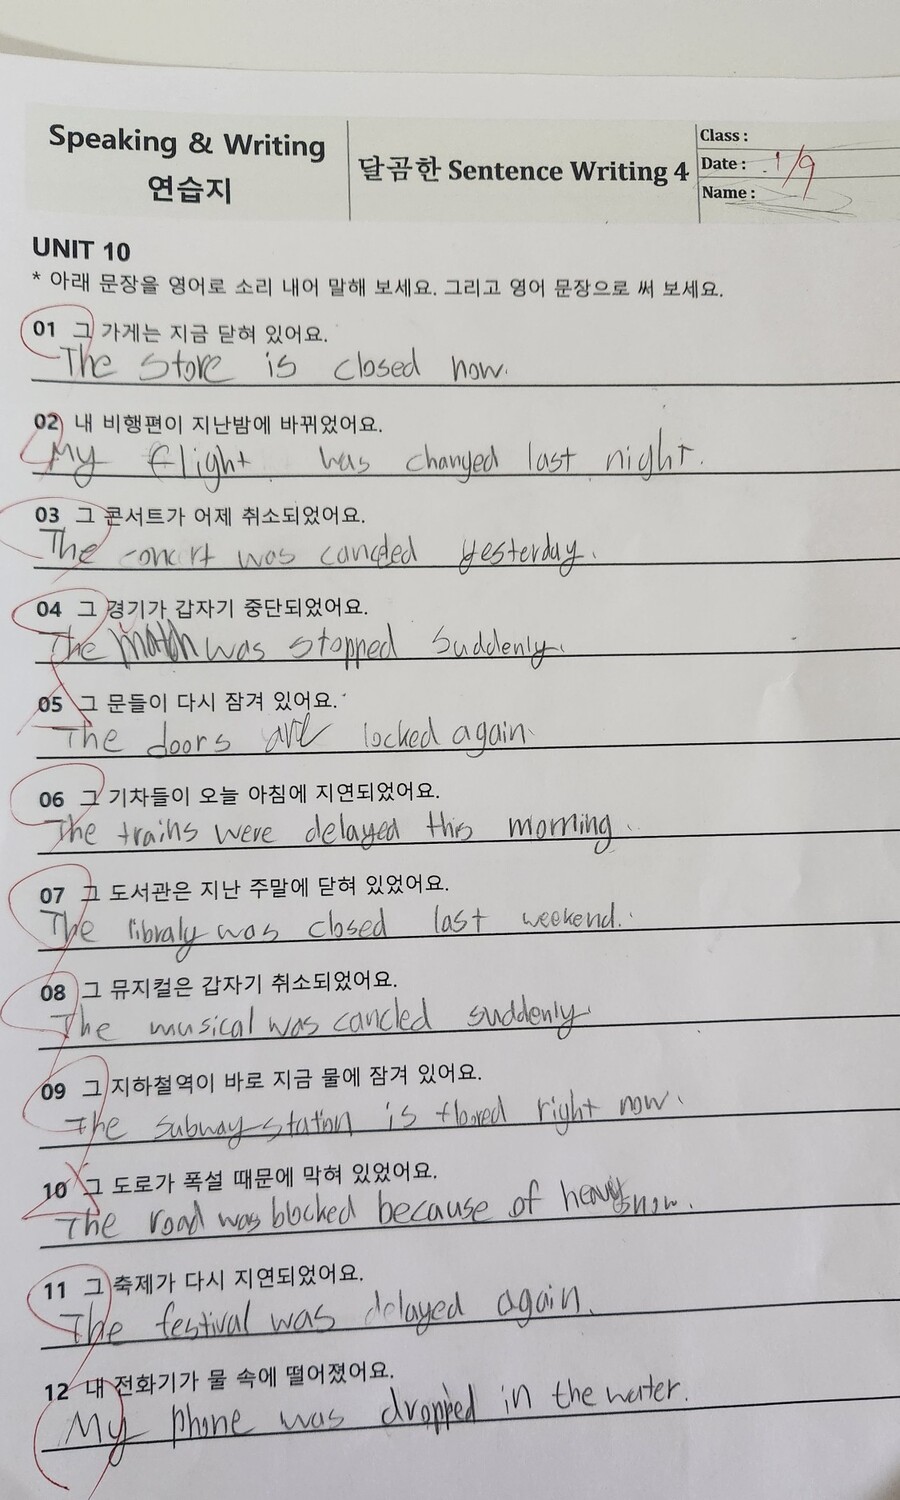 Speaking & Writing
연습지
달곰한 Sentence Writing 4
Class :
Date : 1/9
Name :
UNIT 10
* 아래 문장을 영어로 소리 내어 말해 보세요. 그리고 영어 문장으로 써 보세요.
01 그 가게는 지금 닫혀 있어요.
The store is closed now.
02 내 비행편이 지난밤에 바뀌었어요.
My flight was changed last night.
03 그 콘서트가 어제 취소되었어요.
The was yesterday.
04 그 경기가 갑자기 중단되었어요.
The match was stopped suddenly.
05 그 문들이 다시 잠겨 있어요.
The doors are locked again.
06 그 기차들이 오늘 아침에 지연되었어요.
The trains were delayed this morning.
07 그 도서관은 지난 주말에 닫혀 있었어요.
The libraly was closed last weekend.
08 그 뮤지컬은 갑자기 취소되었어요.
The musical was cancled suddenly
09 그 지하철역이 바로 지금 물에 잠겨 있어요.
The subway station is right now.
10 그 도로가 폭설 때문에 막혀 있었어요.
The road was blocked because of heavy snow.
11 그 축제가 다시 지연되었어요.
The festival was delayed again.
12 내 전화기가 물 속에 떨어졌어요.
My phone was dropped in the water.